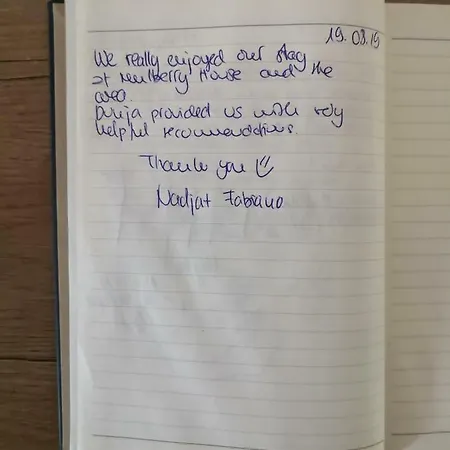 19.08.19
We really enjoyed our stay
at Mulberry House and the
area.
Dunja provided us with very
helpful recommendations.
Thank you
Nadja + Fabiano